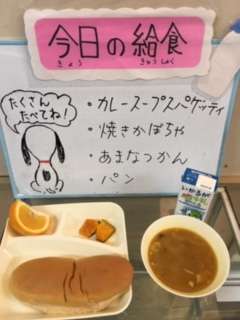 今日の給食
きょう きゅうしょく
たくさん
たべてね!
・カレースープスパゲッティ
・焼きかぼちゃ
・あまなつかん
・パン